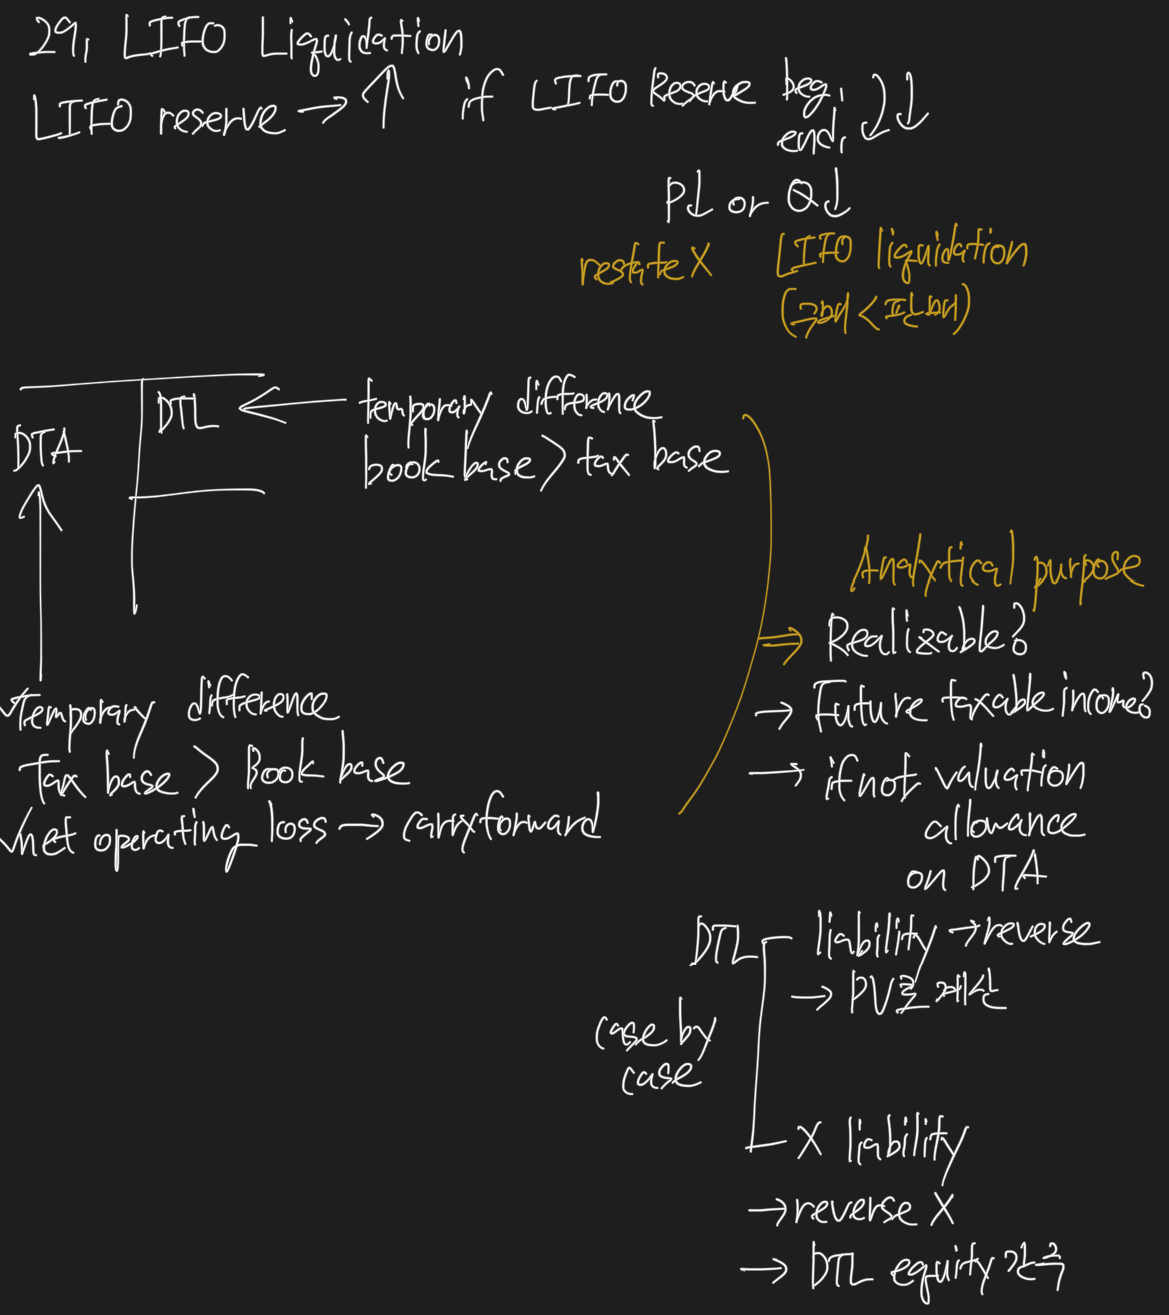 29, LIFO Liquidation
LIFO reserve → ↑ if LIFO Reserve beg. ↓↓
end.
P↓ or Q↓
restate X LIFO liquidation
(구매 < 판매)
DTL ← temporary difference
book base > tax base
DTA
temporary difference
Tax base > Book base
net operating loss → carryforward
Analytical purpose
⇒ Realizable?
→ Future taxable income?
→ if not valuation
allowance
on DTA
DTL liability → reverse
→ PV로 계산
case by
case
X liability
→ reverse X
→ DTL equity 간주